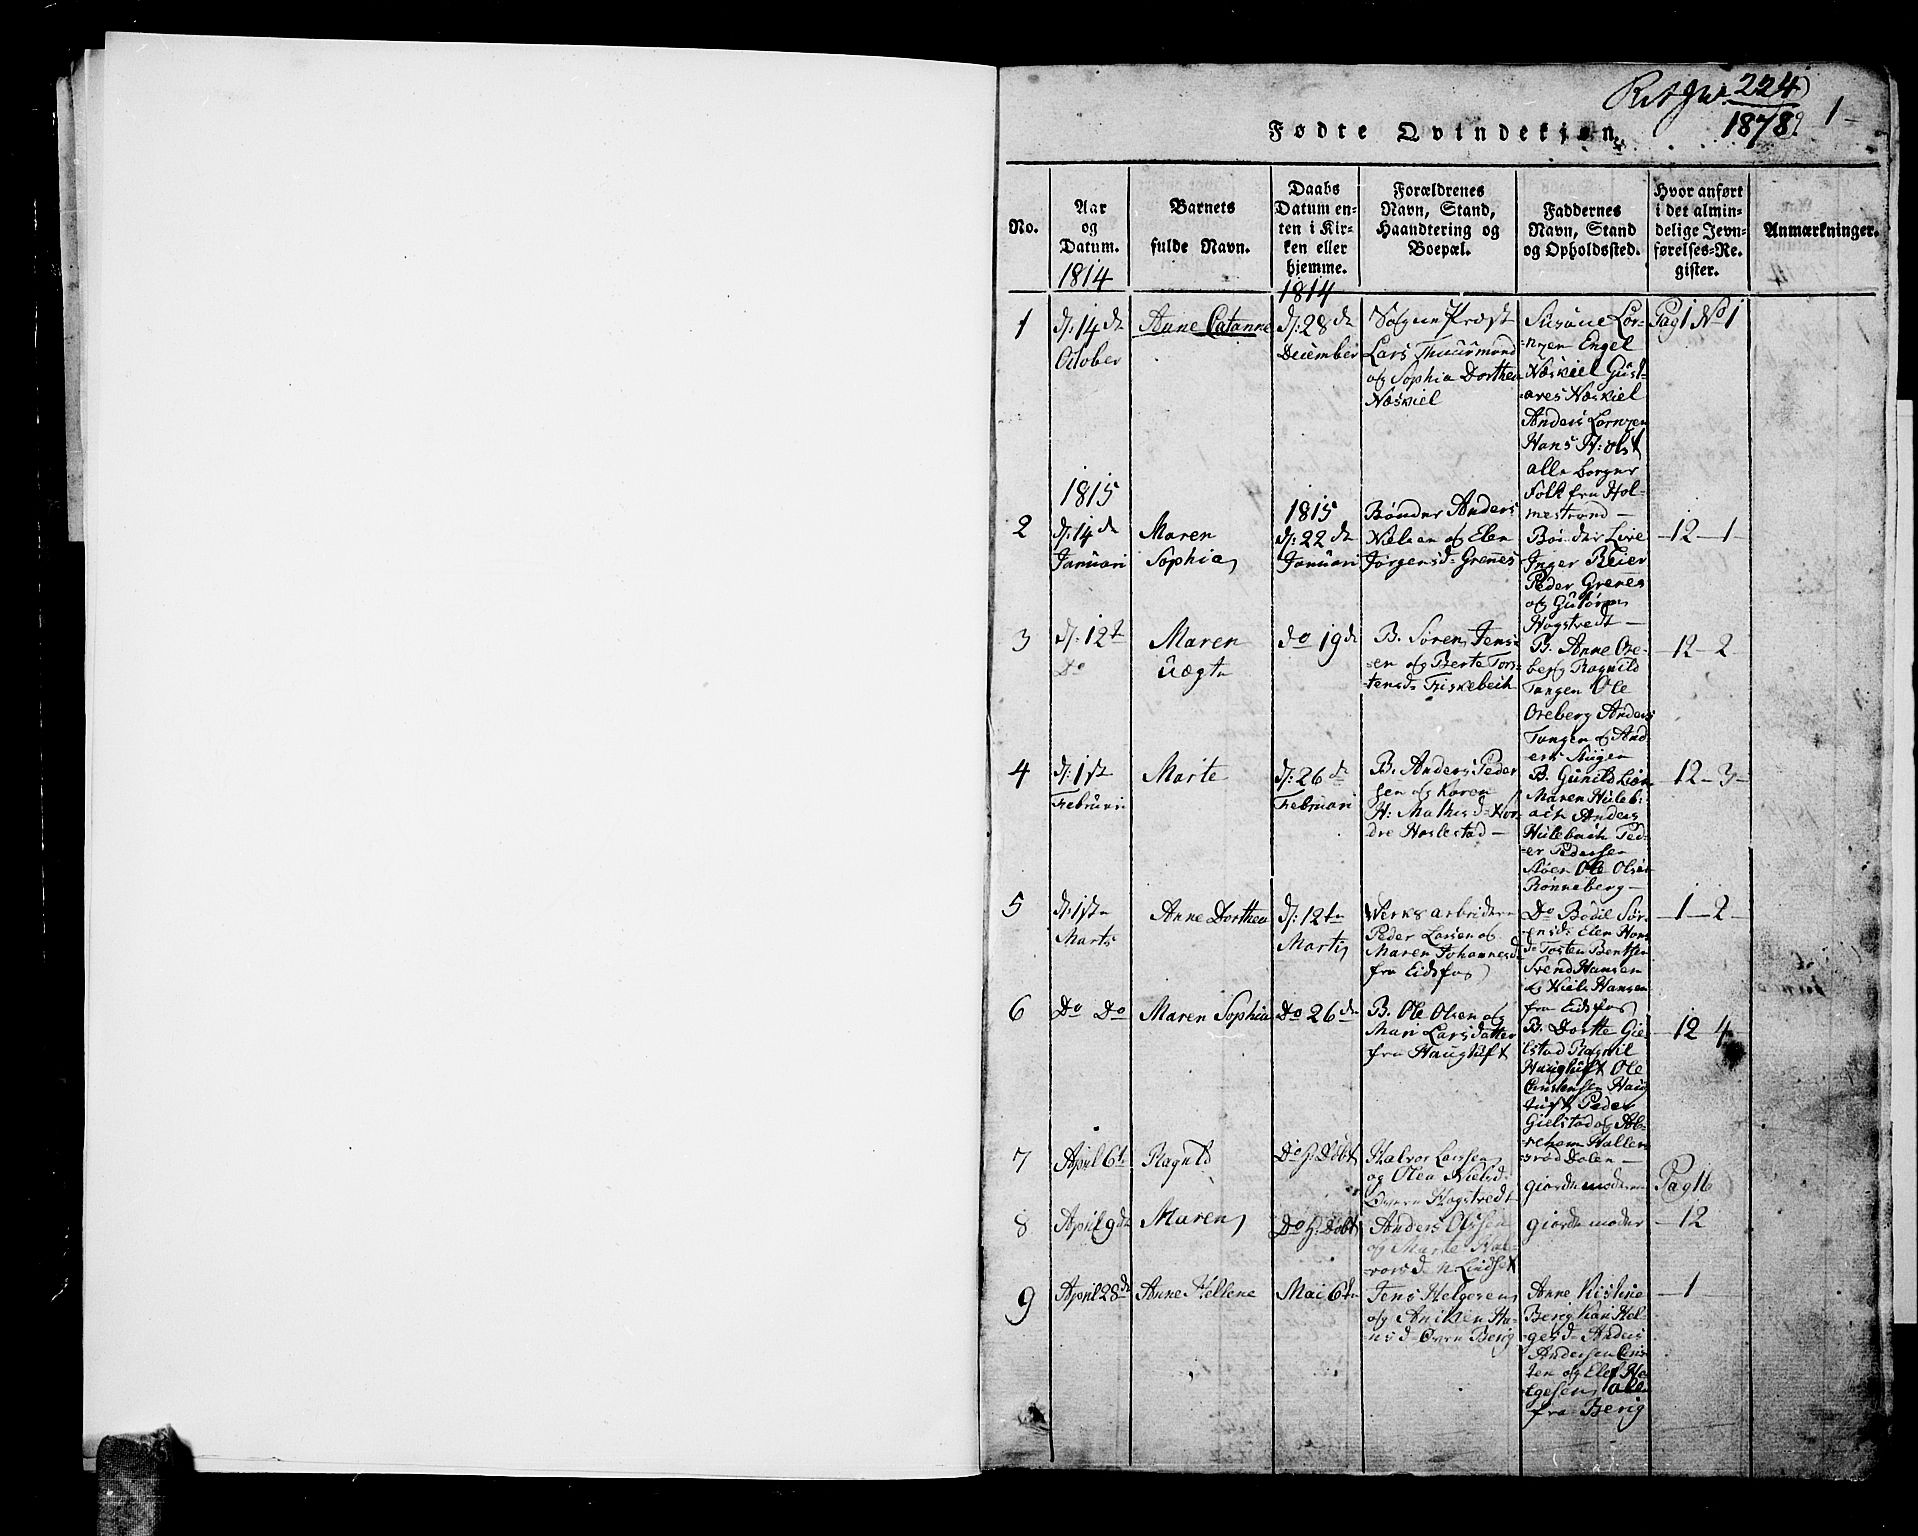 224
1878
1
Fødte Qvindekjøn.
No.
Aar
og
Datum.
1814
Barnets
fulde Navn.
Daabs
Datum en-
ten i Kir-
ken eller
hjemme.
1814
Forældrenes
Navn, Stand,
Haandtering og
Boepæl.
Faddernes
Navn, Stand
og Opholdssted.
Hvor anført
i det almin-
delige Jevn-
førelses-Re-
gister.
Anmærkninger.
1
d: 14de
October
Anne Catanne
d: 28de
December
Sogne Præst
Lars Thuurmond
og Sophia Dorthea
Næskiel
Susane Lor-
nzen Engel
Næskiel Gust-
aves Næskiel
Anders Lornzen
Hans H: olst
alle borger
Folk fra Hol-
mestrand -
Pag 1 No 1
2
1815
d: 14de
Januari
Maren
Sophia
1815
d: 22de
Januari
Bønder Anders
Nielsen og Elen
Jørgensd= Grenes
Bønder Live
Inger Beier
Peder Grenes
og Guttorm
Hogstredt -
12 - 1 -
3
d: 12te
Do
Maren
do 19de
B. Søren Jens-
en og Berte Tors-
tensd= Fiskebech
B. Anne Ore-
berg Ragnild
Tangen Ole
Oreberg Anders
Tangen og And-
ers
12 - 2 -
4
d: 1ste
Februari
Marte
d: 26de
Februari
B. Anders Peder
sen og Karen
H: Mathisd= Nor-
dre Haslestad -
B. Gunild
Maren Huleb-
ach Anders
Hulebach Ped-
er Pedersen
Støen Ole Olsen
Rønneberg -
12 - 3 -
5
d: 1ste
Marts
Anne Dorthea
d: 12te
Marts
Verks arbeidere
Peder Larsen og
Maren Johannesd
fra Eidsfos
Do Bodil Sør-
ensd= Elen Hans
d= Tosten Bentsen
Svend Hansen
og Niels Hansen
fra Eidsfos
- 1 - 2 -
6
Do Do
Maren Sophia
Do 26de
B. Ole Olsen og
Mari Larsdatter
fra Haugtuft
B. Dorthe Gie-
lstad Ragnil
Haugtuft Ole
Christensen Haug
tuft Peder
Gielstad og Ab-
reham Haller
srød Dalen -
- 12 4 -
7
April 6te
Ragnild
Do H: Døbt
Halvor Larsen
og Olea Nielsd=
Øvern Hogstredt
giorde moderen
Pag 16
8
April 9de
Maren
Do H: Døbt
Anders Olsen
og Marte Hal-
vorsd= n. Lindset
giorde moder
- 12
9
April 28de
Anne Hellene
Mai 6te
Jens Helgesen
og Aniken Ha-
nsd= Øvern Berig
Anne Kistine
Berig Kari Hel-
gesd= Anders
Andersen Chris
ten og Elef He-
lgesen alle
fra Berig
- 1